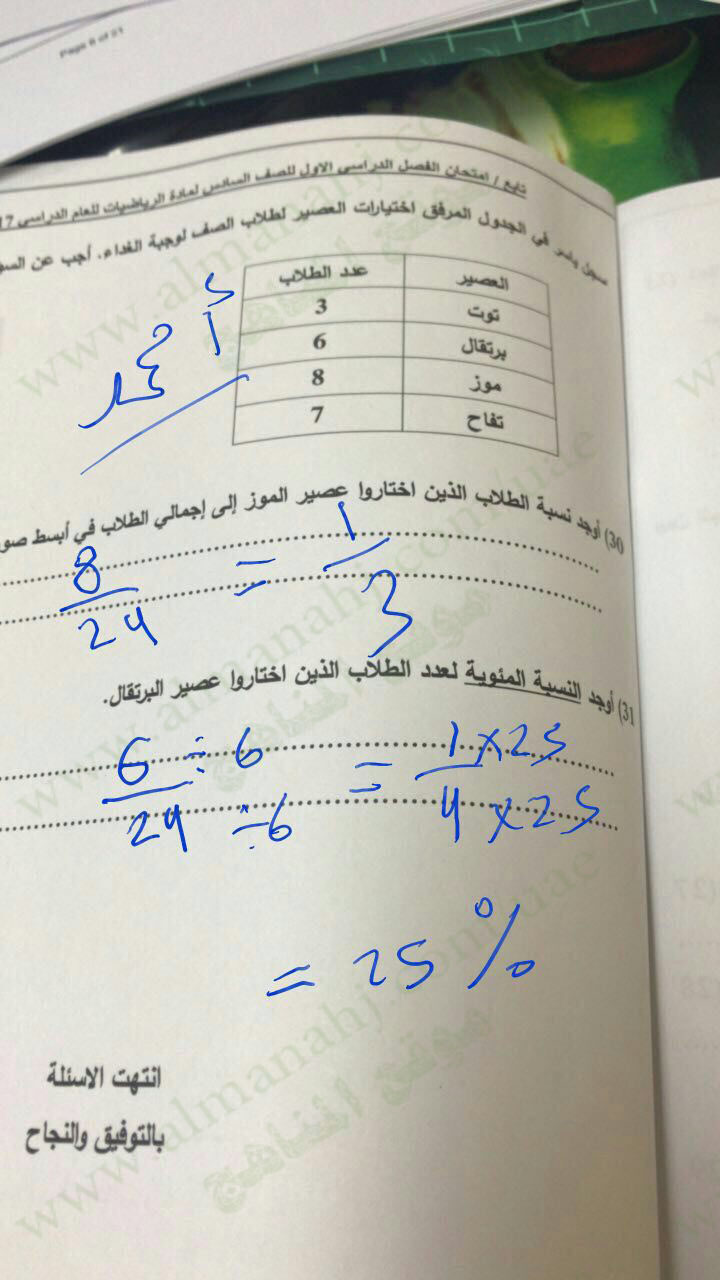 Page 6 of 21
تابع / امتحان الفصل الدراسي الاول للصف السادس لمادة الرياضيات للعام الدراسي 17
سجل ياسر في الجدول المرفق اختيارات العصير لطلاب الصف لوجبة الغداء. أجب عن
العصير عدد الطلاب
توت 3
برتقال 6
موز 8
تفاح 7
أحمد
30) أوجد نسبة الطلاب الذين اختاروا عصير الموز إلى إجمالي الطلاب في أبسط
8/24 = 1/3
31) أوجد النسبة المئوية لعدد الطلاب الذين اختاروا عصير البرتقال.
6 ÷ 6 = 1 x 25
24 ÷ 6 4 x 25
= 25 %
انتهت الاسئلة
بالتوفيق والنجاح
www.almanahj.com/uae
موقع المناهج